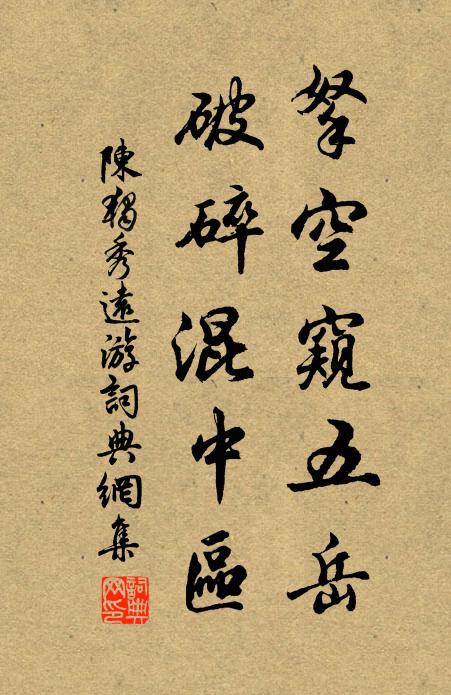 拏空窺五岳
破碎混中區
陳獨秀遠游詞典網集
詞典
网印